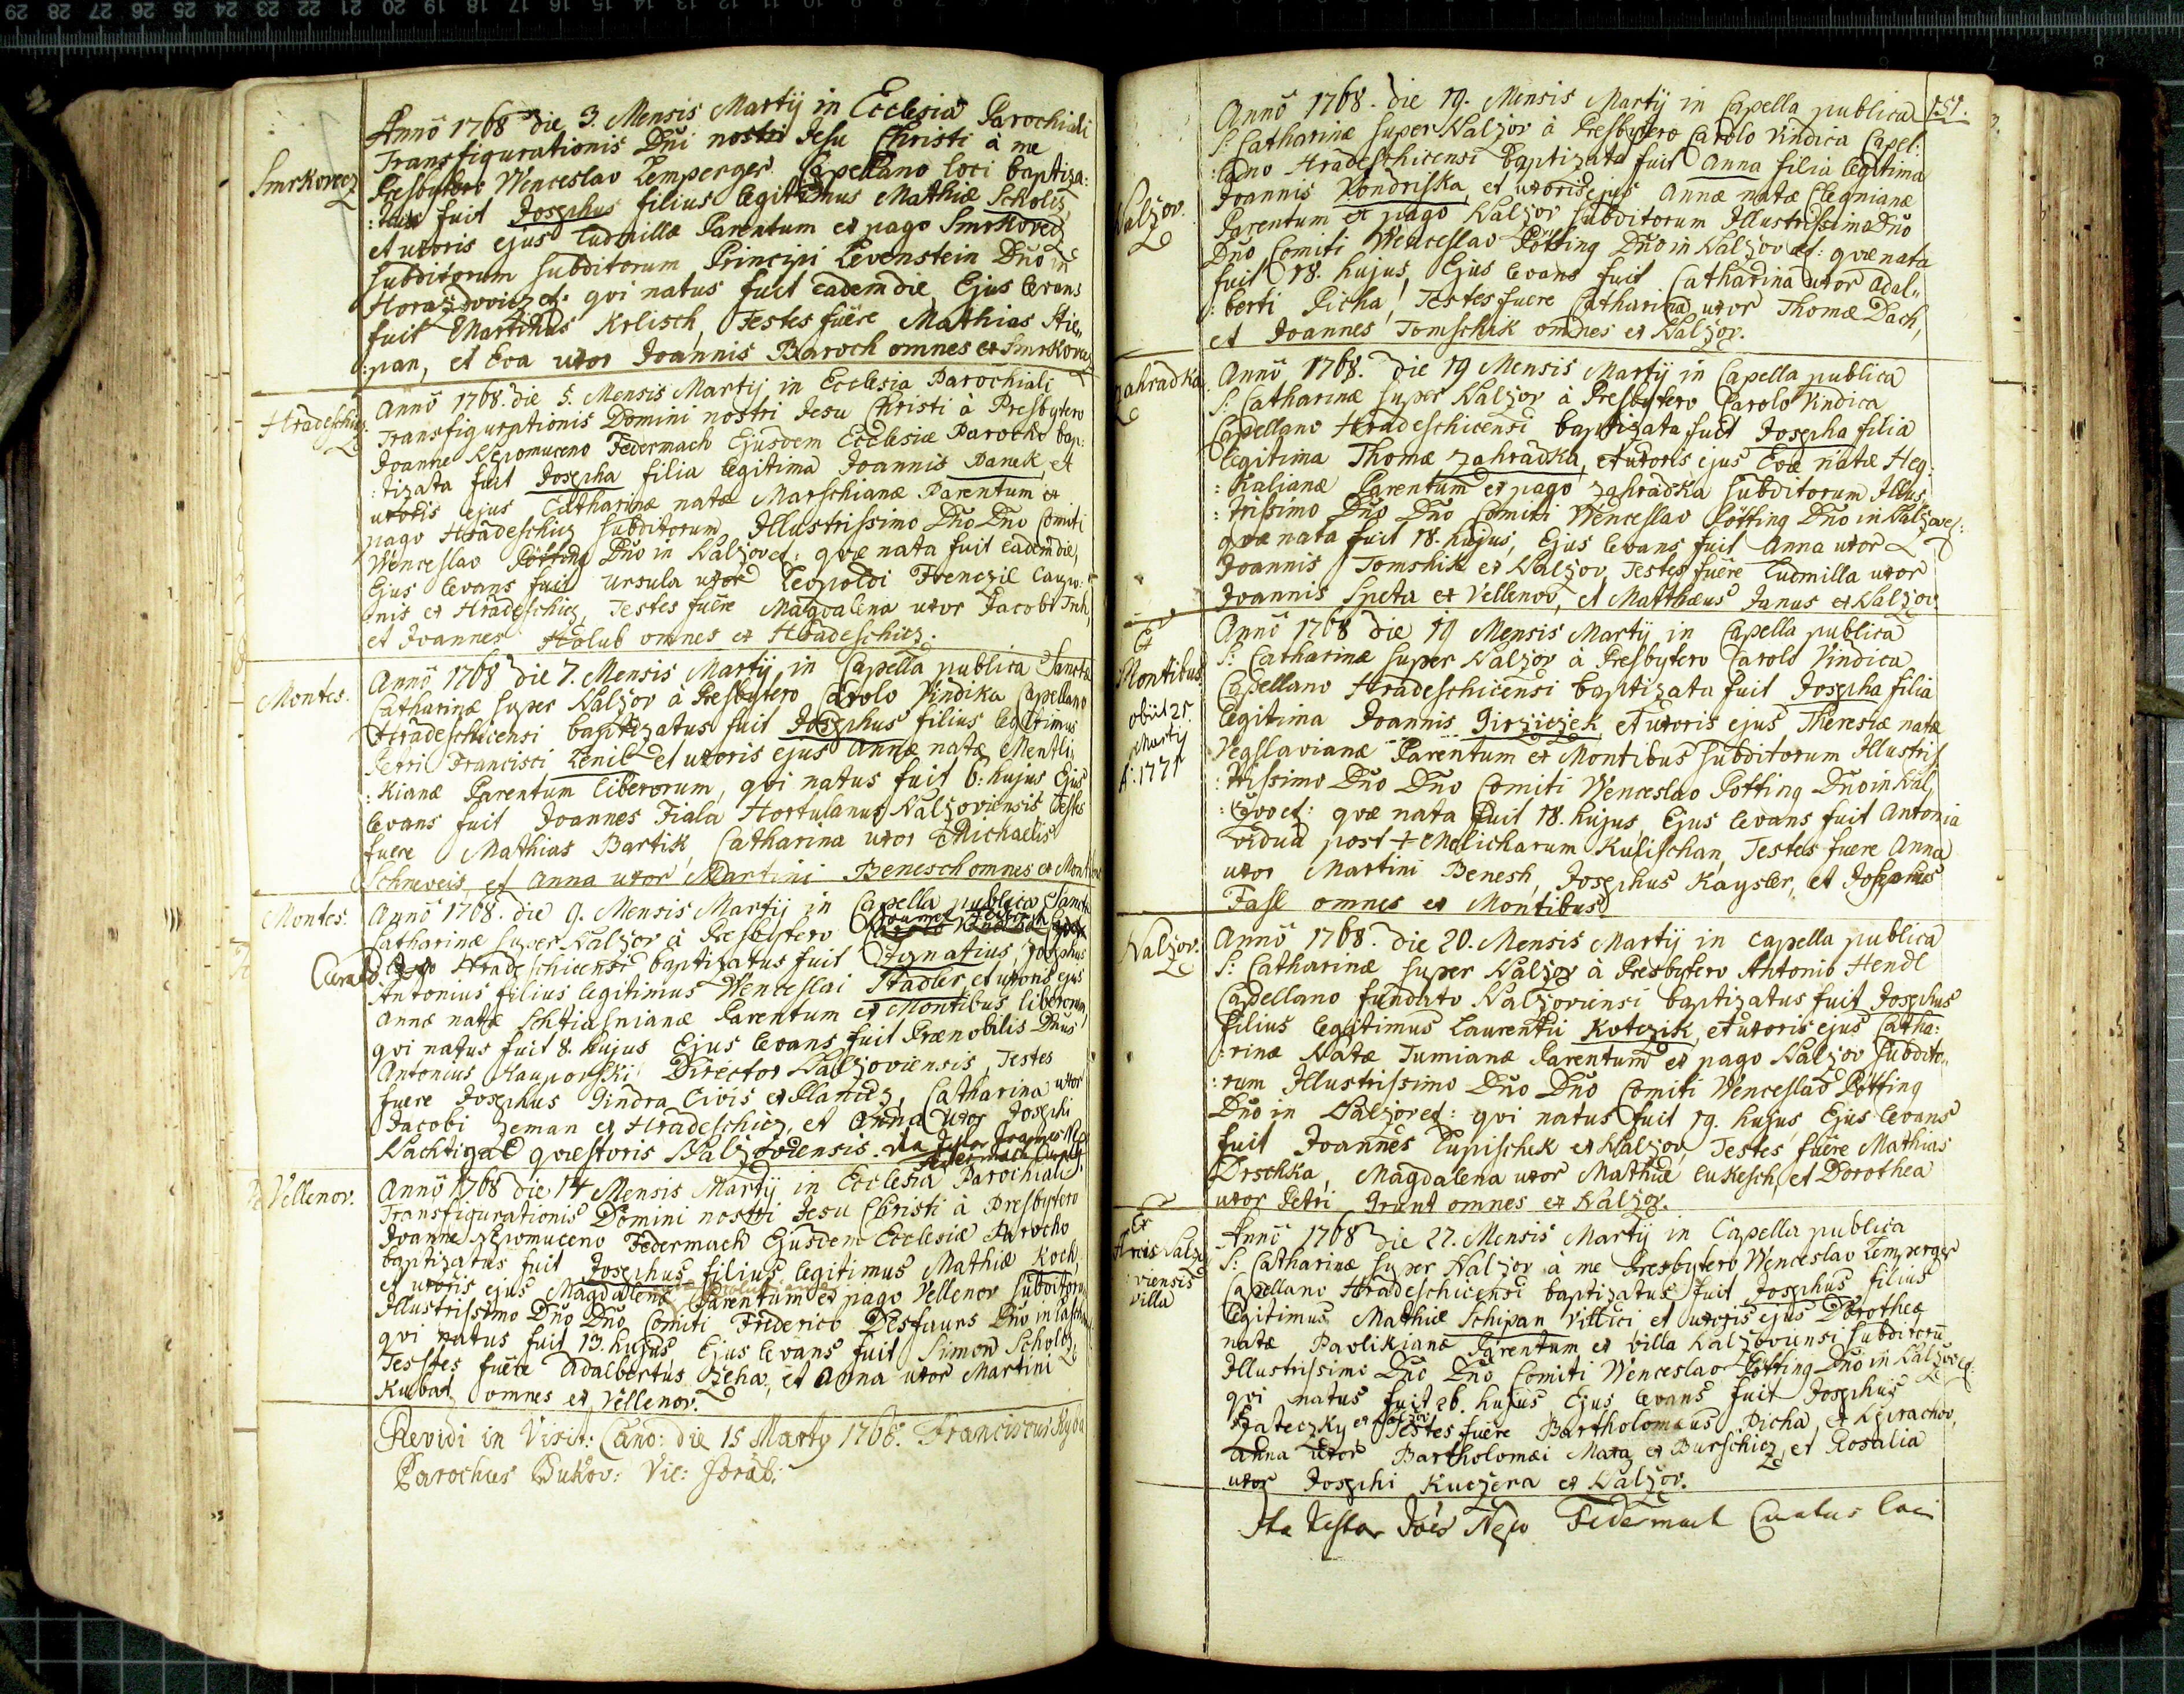 Smrkovecz
Anno 1768 die 3. Mensis Martij in Ecclesia Parochiali
Transfigurationis Dni nostri Jesu Christi à me
Presbytero Wenceslao Lemperger Capellano loci baptiza:
:tus fuit Josephus filius legitimus Mathiæ Scholz
et uxoris ejus Ludmillæ Parentum ex pago Smrkovecz
subditorum subditorum Principi Levenstein Dno in
Horazdovicz et: qvi natus fuit eadem die, Ejus levans
fuit Martinus Krlisch, Testes fuêre Mathias Stie„
:pan, et Eva uxor Joannis Baroch omnes ex Smrkovecz
Hradeschicz
Anno 1768. die 5. Mensis Martij in Ecclesia Parochiali
Transfigurationis Domini nostri Jesu Christi à Presbytero
Joanne Nepomuceno Federmach Ejusdem Ecclesiæ Parocho bap:
:tizata fuit Josepha filia legitima Joannis Panek, et
uxoris ejus Catharinæ natæ Marschianæ Parentum ex
pago Hradeschicz subditorum Illustrissimo Dno Dno Comiti
Wenceslao Pötting Dno in Nalzov et: qvæ nata fuit eadem die,
Ejus levans fuit Ursula uxor Leopoldi Frenczil Caupo:
:nis ex Hradeschicz, Testes fuêre Magdalena uxor Jacobi Truh,
et Joannes Holub omnes ex Hradeschicz.
Montes.
Anno 1768 die 7. Mensis Martij in Capella publica Sanctæ
Catharinæ super Nalzov à Presbytero Carolo Vindika Capellano
Hradeschicensi baptizatus fuit Josephus filius legitimus
Petri Francisci Lenil et uxoris ejus Annæ natæ Mentli„
:kianæ Parentum liberorum, qvi natus fuit 6. hujus Ejus
levans fuit Joannes Fiala Hortulanus Nalzoviensis Testes
fuere Mathias Bartik, Catharina uxor Michaelis
Schneveis, et Anna uxor Martini Benesch omnes ex Montibus
Montes.
Anno 1768. die 9. Mensis Martij in Capella publica Sanctæ
Catharinæ super Nalzov à Presbytero
Curato Hradeschicensi baptizatus fuit Ignatius, Josephus
Antonius filius legitimus Wenceslai Stadler, et uxoris ejus
Annæ natæ Schtiasnianæ Parentum ex Montibus liberorum,
qvi natus fuit 8. hujus Ejus levans fuit Prænobilis Dnus
Antonius Hauporski Director Nalzoviensis, Testes
fuere Josephus Jindra Civis ex Planicz, Catharina uxor
Jacobi Zeman ex Hradeschicz, et Anna Uxor Josephi
Nachtigal qvæstoris Nalzoviensis. Ita Testor Joannes Nep:
Federmach Curatus
Vellenov.
Anno 1768 die 14 Mensis Martij in Ecclesia Parochiali
Transfigurationis Domini nostri Jesu Christi à Presbytero
Joanne Nepomuceno Federmach Ejusdem Ecclesiæ Parocho
baptizatus fuit Josephus filius legitimus Mathiæ Koch,
et uxoris ejus Magdalenæ Parentum ex pago Vellenov subditorum
Illustrissimo Dno Dno Comiti Friderico Desfaurs Dno in
qvi natus fuit 13. hujus Ejus levans fuit Simon Scholtz
Testes fuêre Adalbertus Rzeha, et Anna uxor Martini
Kubat omnes ex Vellenov.
Revidi in Visit: Cano: die 15 Marty 1768. Franciscus
Parochus Bukov: Vic: Forab:
151.
Nalzov.
Anno 1768. die 19. Mensis Martij in Capella publica
S: Catharinæ super Nalzov à Presbytero Carolo Vindica Capel:
:lano Hradeschicensi baptizata fuit Anna filia legitima
Joannis Kondriska, et uxoris ejus Annæ natæ Clegnianæ
Parentum ex pago Nalzov subditorum Illustrissimo Dno
Dno Comiti Wenceslao Pötting Dno in Nalzov et: qvæ nata
fuit 18. hujus, Ejus levans fuit Catharina uxor Adal„
:berti Picha, Testes fuere Catharina uxor Thomæ Dach,
et Joannes Tomschik omnes ex Nalzov.
Zahradka
Anno 1768. die 19 Mensis Martij in Capella publica
S: Catharinæ super Nalzov à Presbytero Carolo Vindica
Capellano Hradeschicensi baptizata fuit Josepha filia
legitima Thomæ Zahradka, et uxoris ejus Evæ natæ Heg:
:kalianæ Parentum ex pago Zahradka subditorum Illus„
:trissimo Dno Dno Comiti Wenceslao Pötting Dno in Nalzov et:
qvæ nata fuit 18. hujus, Ejus levans fuit Anna uxor
Joannis Tomshik ex Nalzov, Testes fuêre Ludmilla uxor
Joannis Speta ex Vellenov, et Matthæus Janus ex Nalzov.
Ex
Montibus.
obiit 25.
Martij
A: 1771
Anno 1768 die 19 Mensis Martij in Capella publica
S: Catharinæ super Nalzov à Presbytero Carolo Vindica
Capellano Hradeschicensi baptizata fuit Josepha filia
legitima Joannis Jirziczek, et uxoris ejus Theresiæ natæ
Vegslavianæ Parentum ex Montibus subditorum Illustris„
:trissimo Dno Dno Comiti Wenceslao Pötting Dno in Nal„
:zov et: qvæ nata fuit 18. hujus, Ejus levans fuit Antonia
vidua post + Melicharum Kulischan, Testes fuere Anna
uxor Martini Benesh, Josephus Kaysler, et Josephus
Fasl omnes ex Montibus.
Nalzov.
Anno 1768. die 20. Mensis Martij in Capella publica
S: Catharinæ super Nalzov à Presbytero Antonio Hendl
Capellano fundato Nalzoviensi baptizatus fuit Josephus
filius legitimus Laurentii Kotczik, et uxoris ejus Catha:
:rinæ Natæ Tumianæ Parentum ex pago Nalzov subdito„
:rum Illustrissimo Dno Dno Comiti Wenceslao Pötting
Dno in Nalzov et: qvi natus fuit 19. hujus, Ejus levans
fuit Joannes Lupischek ex Nalzov, Testes fuêre Mathias
Drschka, Magdalena uxor Mathiæ Lukesch, et Dorothea
uxor Petri Grunt omnes ex Nalzov.
Ex
Arcis Nalzo
:viensis
villa
Anno 1768 die 27. Mensis Martij in Capella publica
S: Catharinæ super Nalzov à me Presbytero Wenceslao Lemperger
Capellano Hradeschicensi baptizatus fuit Josephus filius
legitimus Mathiæ Schipan villici et uxoris ejus Dorotheæ
natæ Pavlikianæ Parentum ex villa Nalzoviensi subditorũ
Illustrissimo Dno Dno Comiti Wenceslao Pötting Dno in Nalzov et:
qvi natus fuit 26. hujus, Ejus levans fuit Josephus
Zateczky, ex Nalzov Testes fuêre Bartholomæus Picha, ex
Anna uxor Bartholomæi Maxa, ex Burschicz, et Rosalia
uxor Josephi Kuczera ex Nalzov.
Ita Testor Joês Nepo Federmach Curatus loci